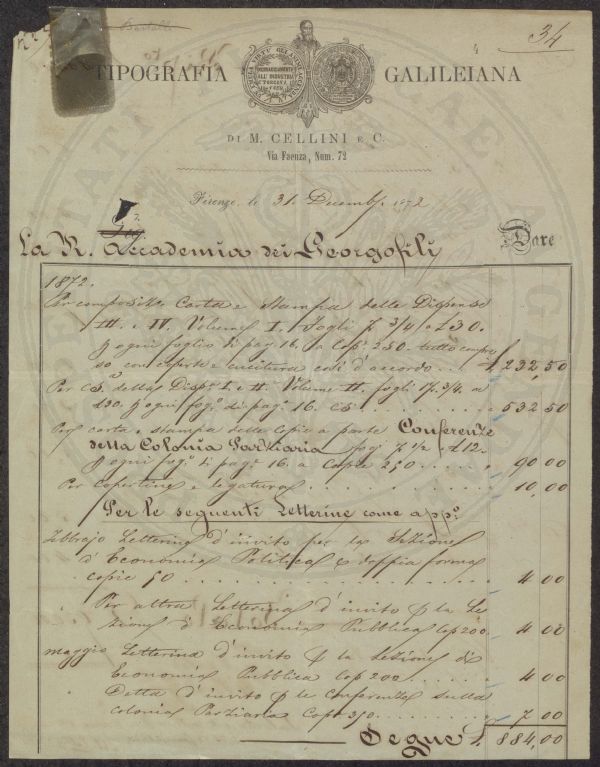 34
TIPOGRAFIA GALILEIANA
DI M. CELLINI E C.
Via Faenza, Num. 72
Firenze, le 31. Decembre 1872
La R. Accademia dei Georgofili
Dare
1872.
Per composize. Carta e stampa delle Dispense
III. e IV. Volume I. fogli 7. 3/4 a £30.
p ogni foglio di pag. 16. a Cop. 250. tutto compre
so, con coperte e cucitura così d'accordo . . . £ 232,50
Per CS. delle Disp. I. e II. Volume II. fogli 17. 3/4. a
£30. p ogni fog. di pag. 16. CS . . . . 532 50
Per carta e stampa delle Copie a parte Conferenze
della Colonia Parziaria fog. 7. 1/2 . £12.
p ogni fog. di pag. 16. a Copie 250 . . . . 90,00
Per copertine e legatura . . . . 10,00
Per le seguenti Letterine come app.
Febbrajo Letterina d'invito per la Sezione
d'Economia Politica doppia forma
copie 50 . . . . 4 00
Per altra Letterina d'invito p la Se
zione d'Economia Pubblica Cop. 200 . 4 00
Maggio Letterina d'invito p la Sezione di
Economia Pubblica Cop. 200 . . . . 4 00
Detta d'invito p le conferenze sulla
colonia Parziaria Cop. 350 . . . . 7 00
Segue £. 884,00